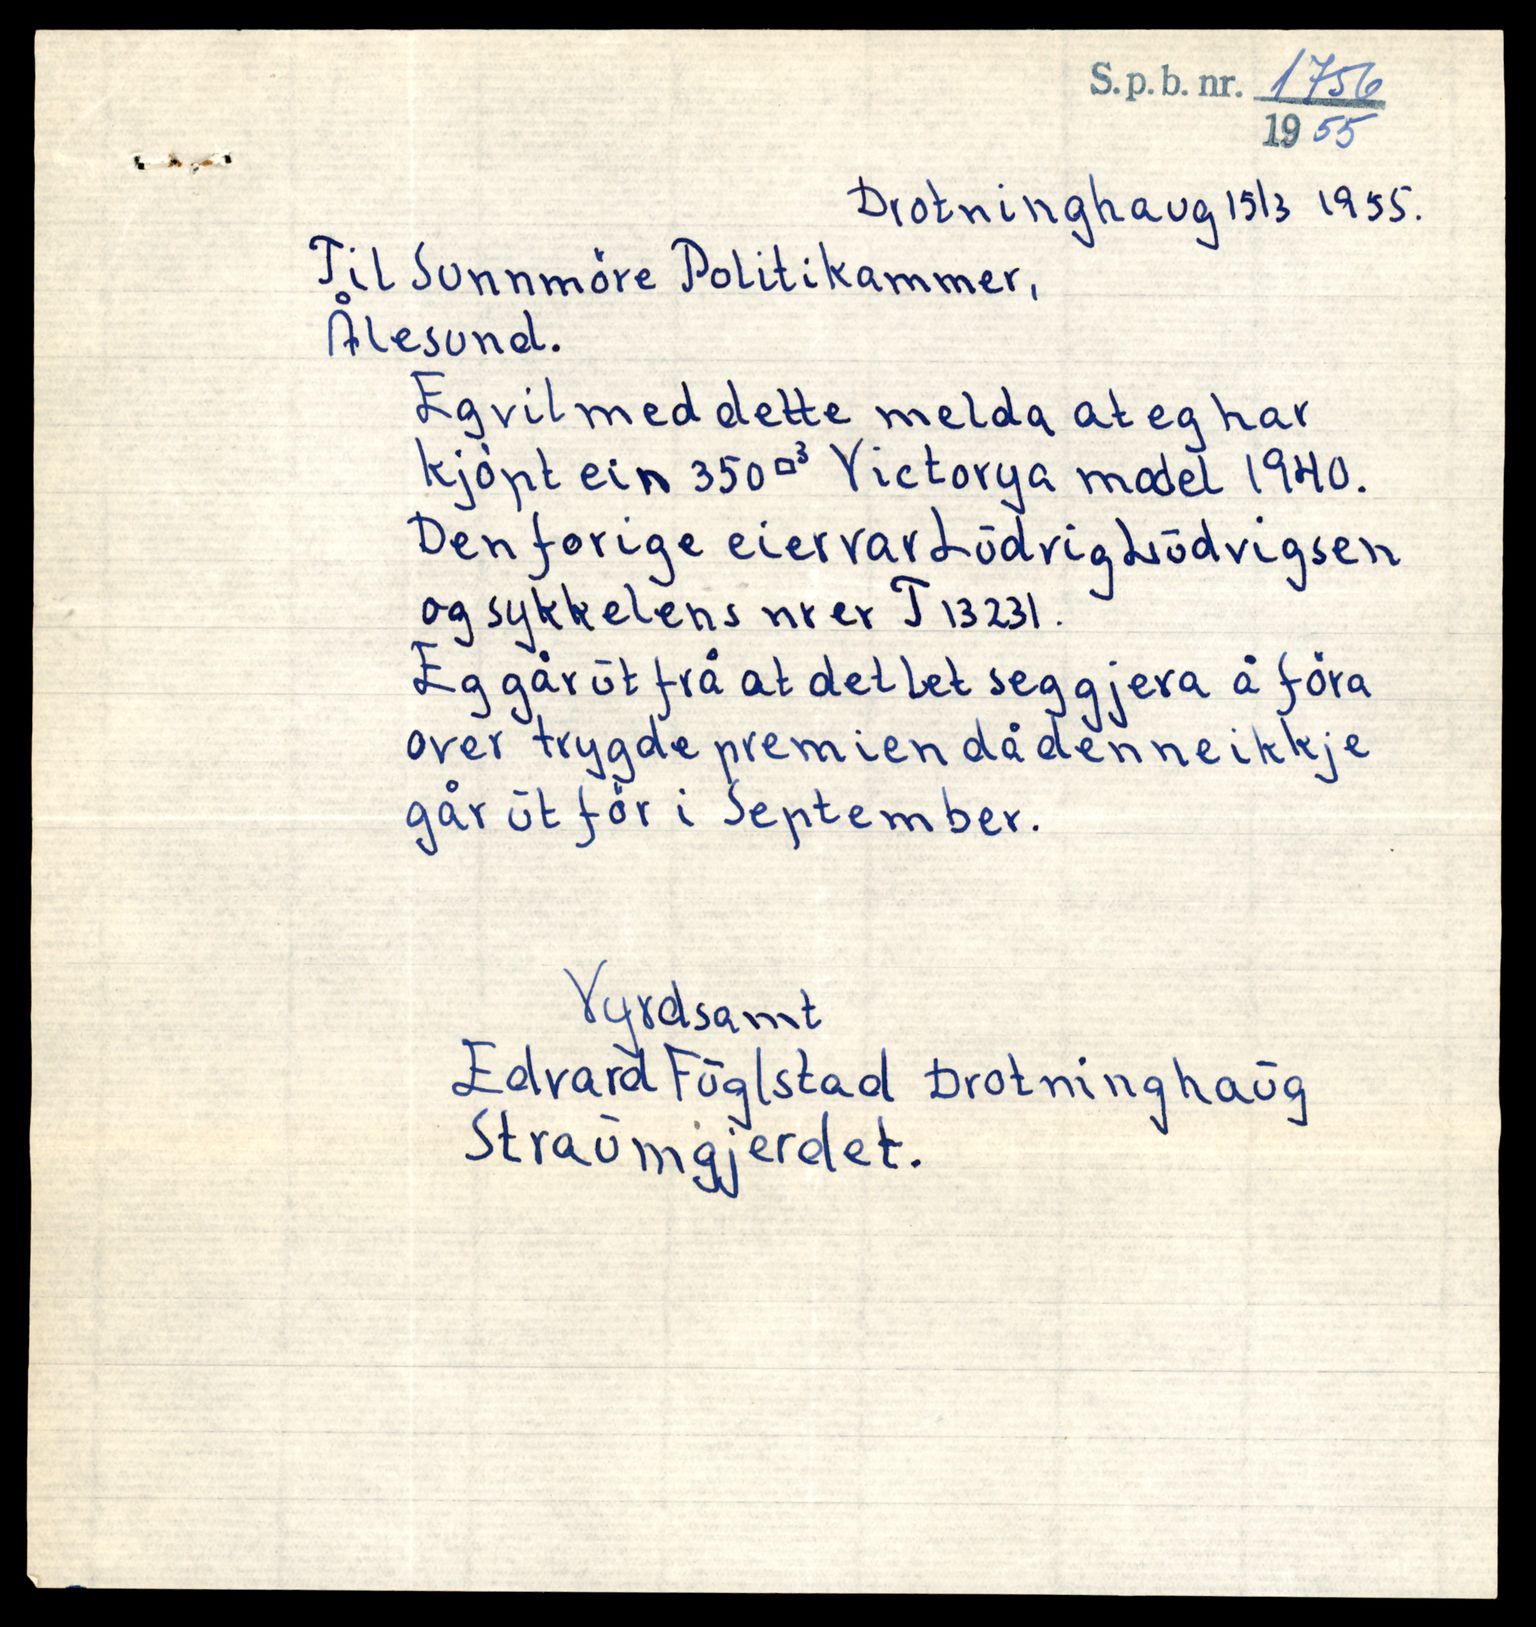 S.p.b. nr. 1756
1955
Drotninghaug 15/3 1955.
Til Sunnmöre Politikammer,
Ålesund.
Eg vil med dette melda at eg har
kjöpt ein 350 □³ Victorya model 1940.
Den forige eier var Ludvig Ludvigsen
og sykkelens nr er T 13231.
Eg går ut frå at det let seg gjera å föra
over trygde premien då denne ikkje
går ut för i September.
Vyrdsamt
Edvard Fuglstad Drotninghaug
Straumgjerdet.